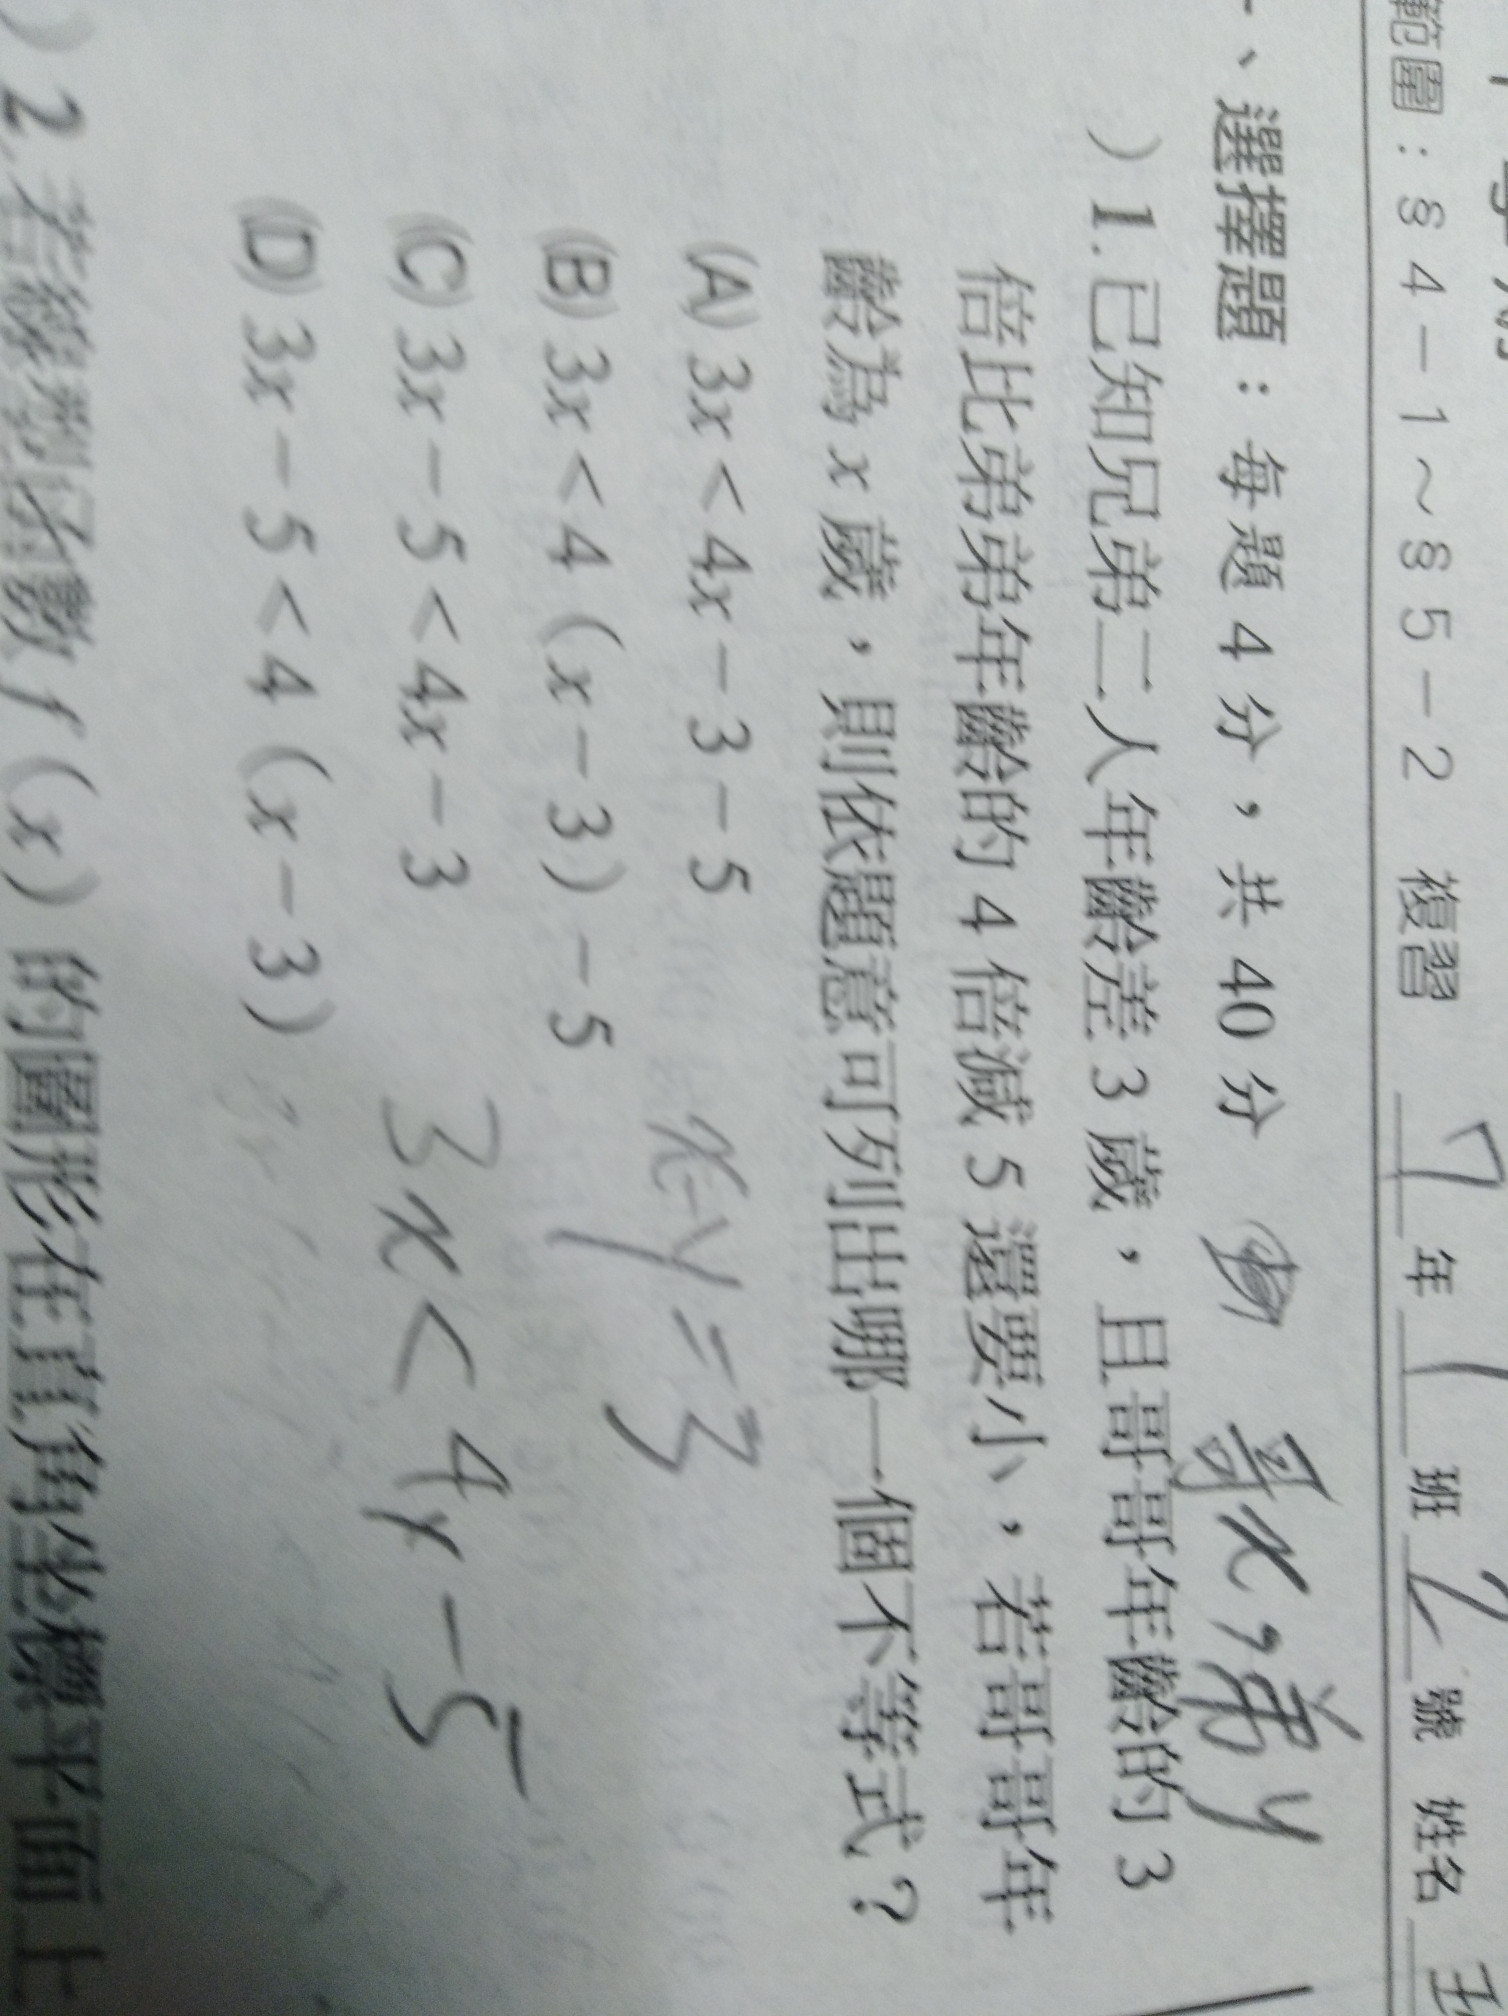 範圍：§4－1～§5－2 複習 7 年 1 班 2 號 姓名
一、選擇題：每題 4 分，共 40 分 哥x，弟y
）1. 已知兄弟二人年齡差 3 歲，且哥哥年齡的 3
倍比弟弟年齡的 4 倍減 5 還要小，若哥哥年
齡為 x 歲，則依題意可列出哪一個不等式？
(A) 3x＜4x－3－5
(B) 3x＜4（x－3）－5
(C) 3x－5＜4x－3
(D) 3x－5＜4（x－3）
x-y=3
3x<4y-5
）2. 若線型函數 f（x）的圖形在直角坐標平面上